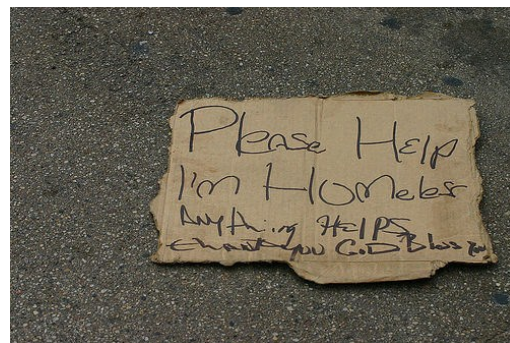 Please Help
I'm Homeless
Anything HELPS
thank you GOD Bless you